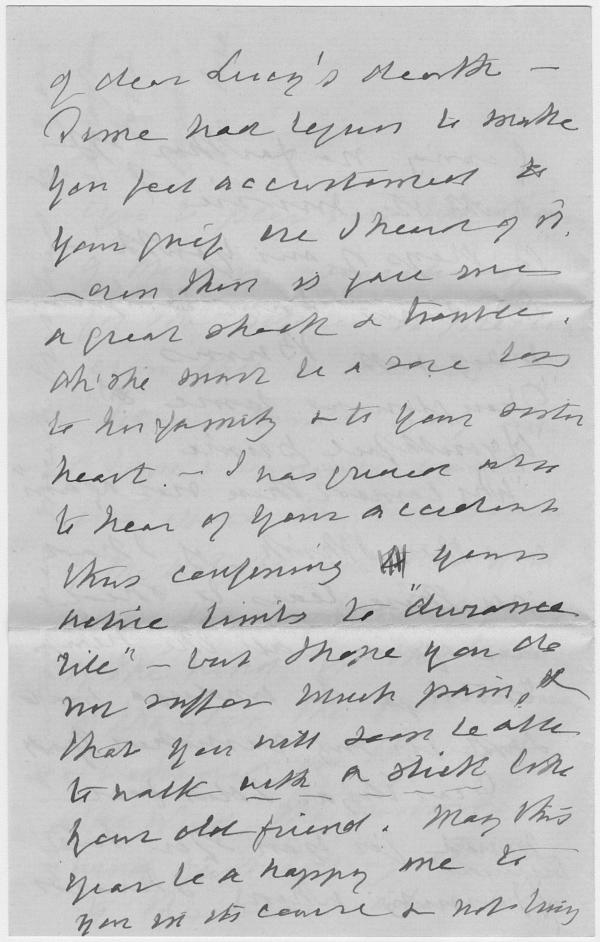 of dear Lucy's death –
Time had begun to make
you feel accustomed to
your grief ere I heard of it,
– and then it gave me
a great shock & trouble.
Oh! she must be a sore loss
to her family & to your sister
heart. – I was grieved also
to hear of your accident
thus confining your
active limbs to "durance
vile" – but I hope you do
not suffer much pain, &
that you will soon be able
to walk with a stick like
your old friend. May this
year be a happy one to
you in its course & nothing